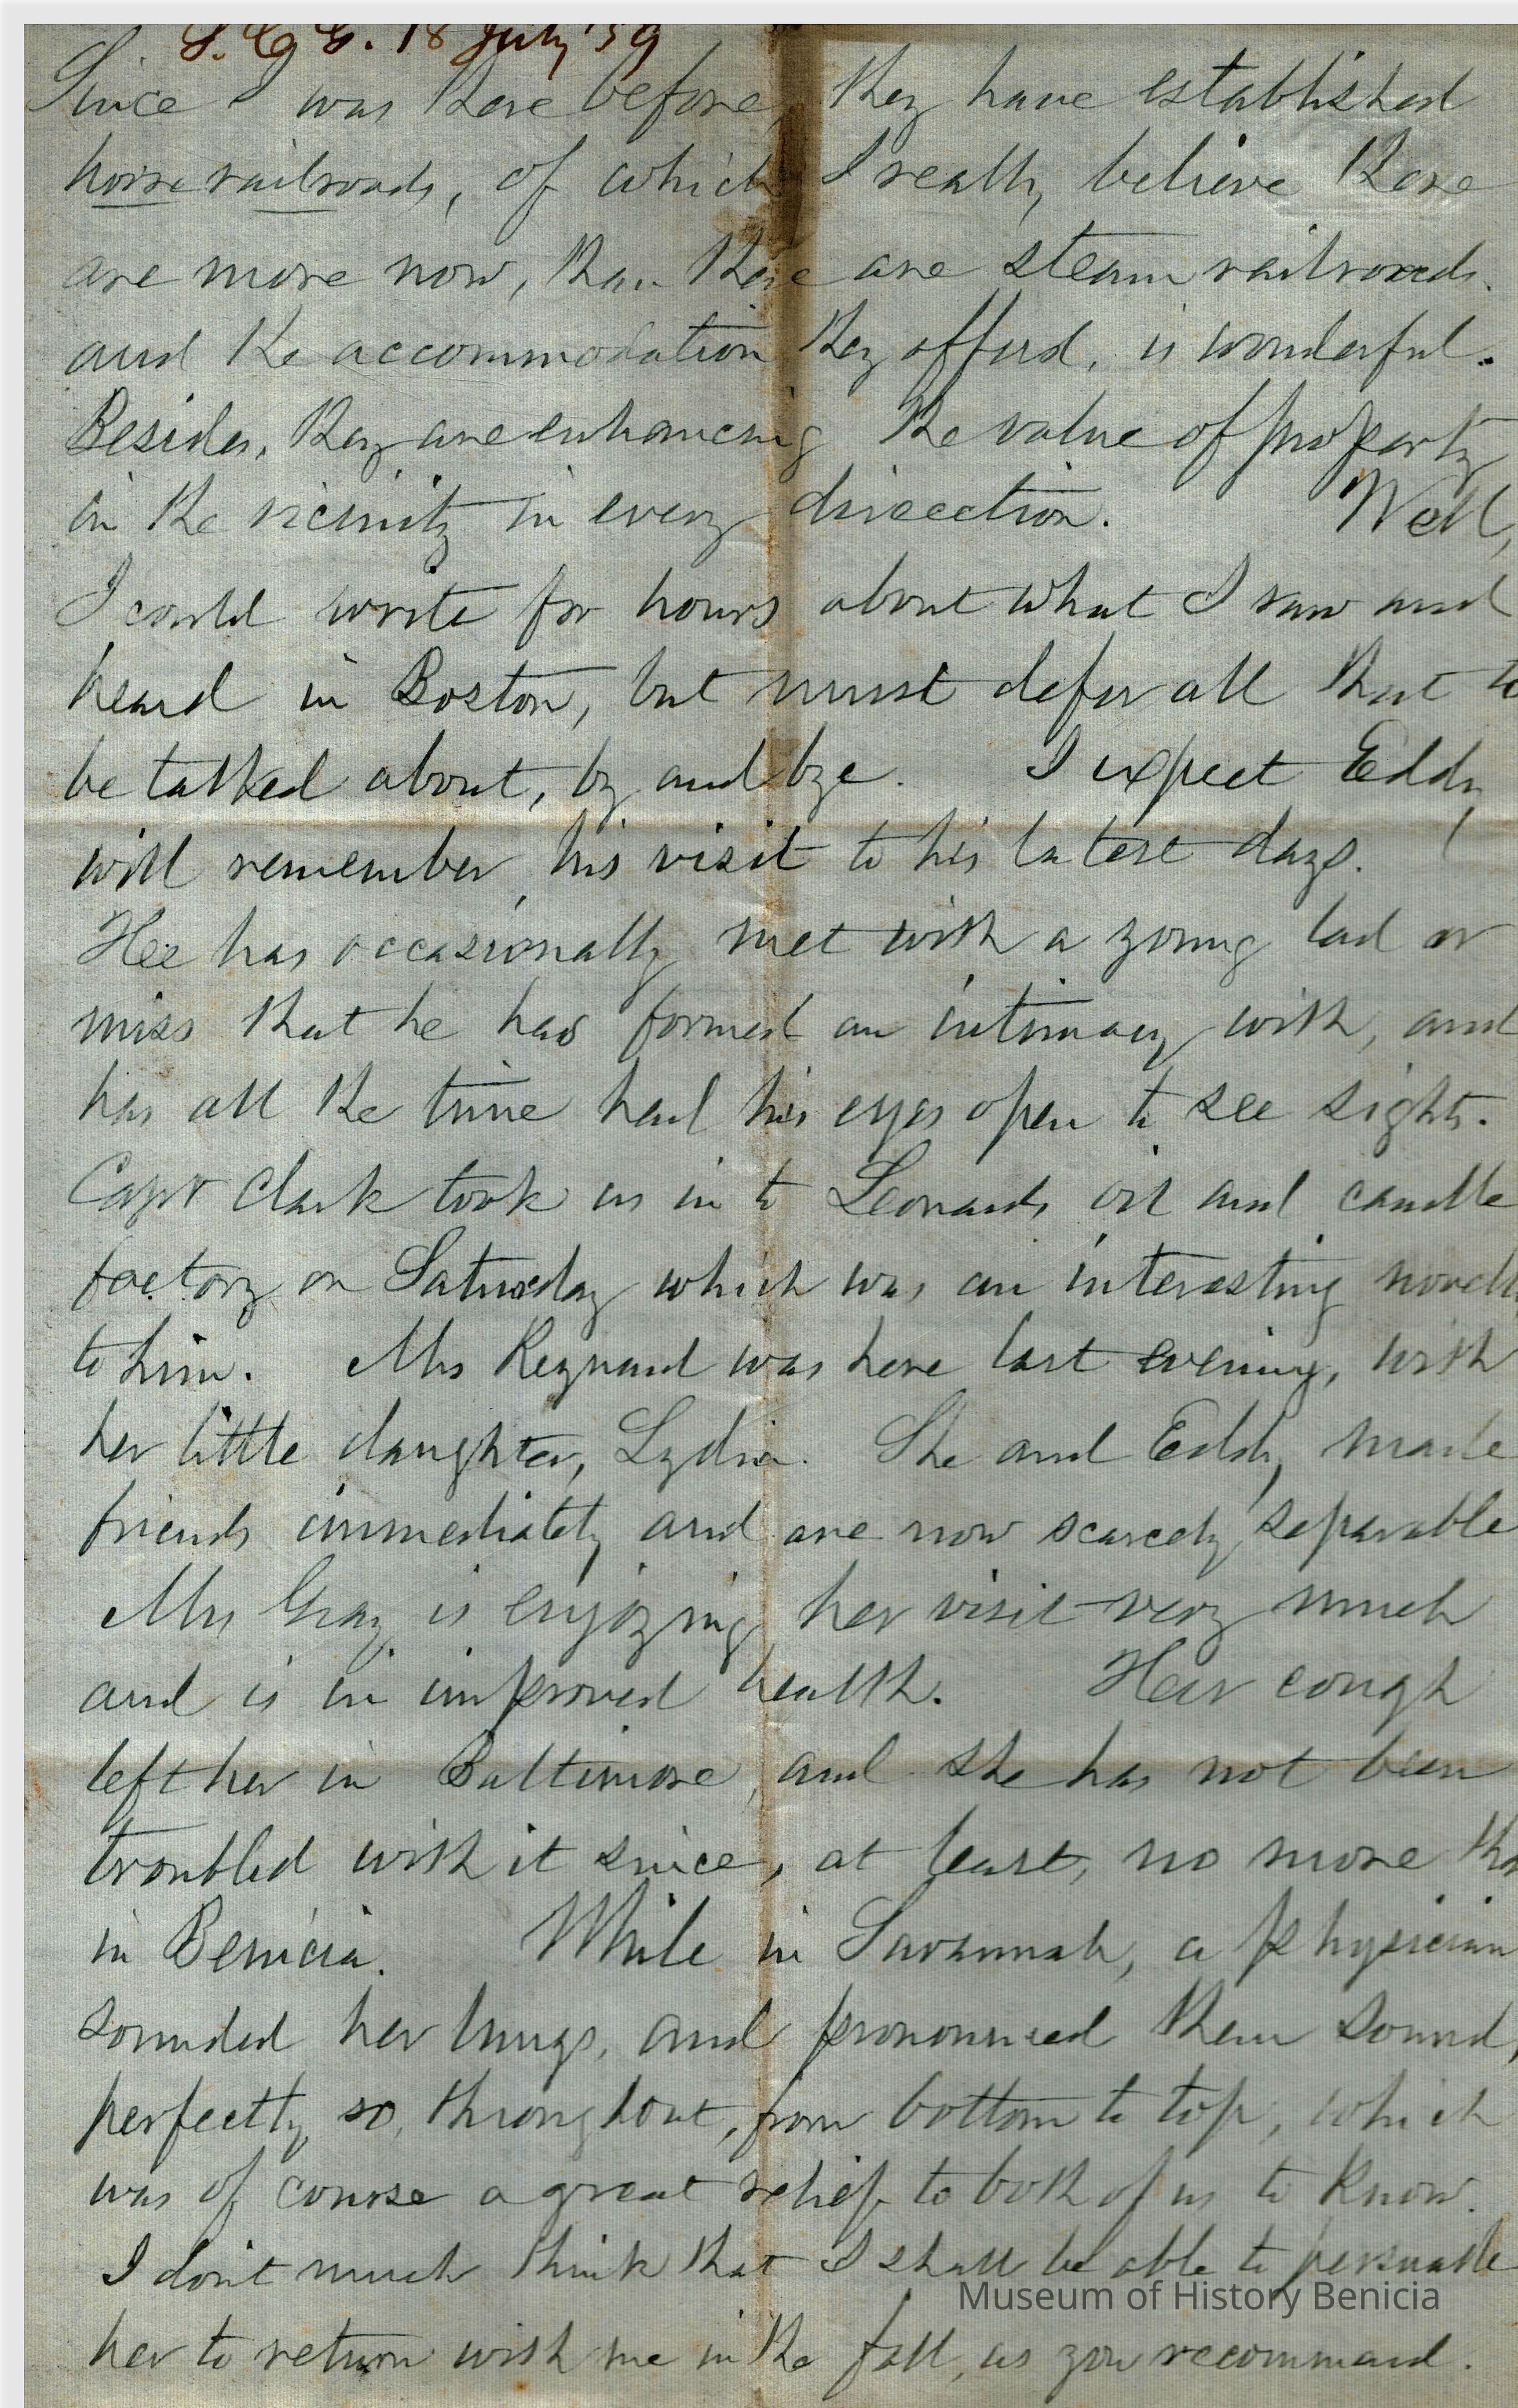 S. C. G. 18 July '59
Since I was here before, they have established
horse railroads, of which I really believe there
are more now, than there are steam railroads.
and the accommodation they afford, is wonderful.
Besides, they are enhancing the value of property
in the vicinity in every direction. Well,
I could write for hours about what I saw and
heard in Boston, but must defer all that to
be talked about, by and bye. I expect Eddy
will remember his visit to his latest days.
Hee has occasionally met with a young lad or
miss that he has formed an intimacy with, and
has all the time had his eyes open to see sights.
Capt Clark took us in to Leonards oil and candle
factory on Saturday which was an interesting novelty
to him. Mrs Reynard was here last evening, with
her little daughter, Lydia. She and Eddy, made
friends immediately and are now scarcely separable
Mrs Gray is enjoying her visit very much
and is in improved health. Her cough
left her in Baltimore, and she has not been
troubled with it since, at least, no more than
in Benicia. While in Savannah, a physician
sounded her lungs, and pronounced them sound,
perfectly so, throughout, from bottom to top, which
was of course a great relief to both of us to know.
I don't much think that I shall be able to persuade
Museum of History Benicia
her to return with me in the fall, as you recommend.